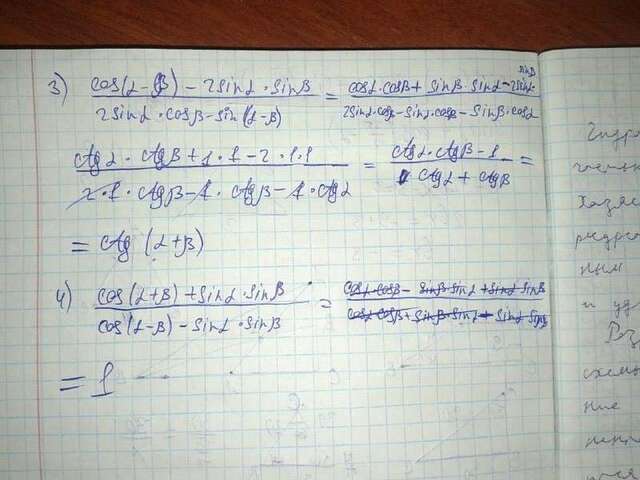 3) (cos(α-β) - 2sinα·sinβ)/(2sinα·cosβ-sin(α-β)) = (cosα·cosβ + sinβ·sinα - 2sinα·sinβ)/(2sinα·cosβ - sinα·cosβ - sinβ·cosα)
(ctgα·ctgβ + 1·1 - 2·1·1)/(2·1·ctgβ - 1·ctgβ - 1·ctgα) = (ctgα·ctgβ - 1)/(ctgα + ctgβ) =
= ctg(α+β)
4) (cos(α+β) + sinα·sinβ)/(cos(α-β) - sinα·sinβ) = (cosα·cosβ - sinβ·sinα + sinα·sinβ)/(cosα·cosβ + sinβ·sinα - sinα·sinβ)
= 1